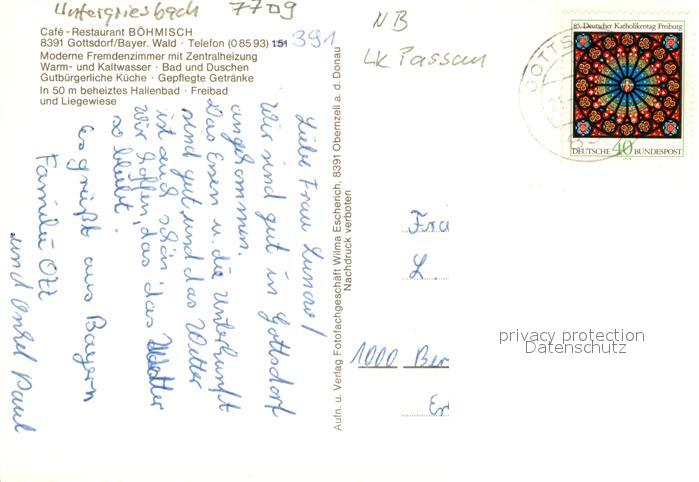 Untergriesbach 7709
Café - Restaurant BÖHMISCH
8391 Gottsdorf/Bayer. Wald · Telefon (0 85 93) 151 391
Moderne Fremdenzimmer mit Zentralheizung
Warm- und Kaltwasser · Bad und Duschen
Gutbürgerliche Küche · Gepflegte Getränke
In 50 m beheiztes Hallenbad · Freibad
und Liegewiese
Liebe Frau
Wir sind gut in Gottsdorf
angekommen.
Das Essen u. die Unterkunft
sind gut und das Wetter
ist auch schön
Wir hoffen, das das Wetter
so bleibt.
Es grüßt aus Bayern
Familie Ott
und Onkel Paul
Aufn. u. Verlag Fotofachgeschäft Wilma Escherich, 8391 Obernzell a. d. Donau
Nachdruck verboten
NB
LK Passau
GOTTS
85. Deutscher Katholikentag Freiburg
DEUTSCHE 40 BUNDESPOST
Fra
L.
1000 Ber
privacy protection
Datenschutz